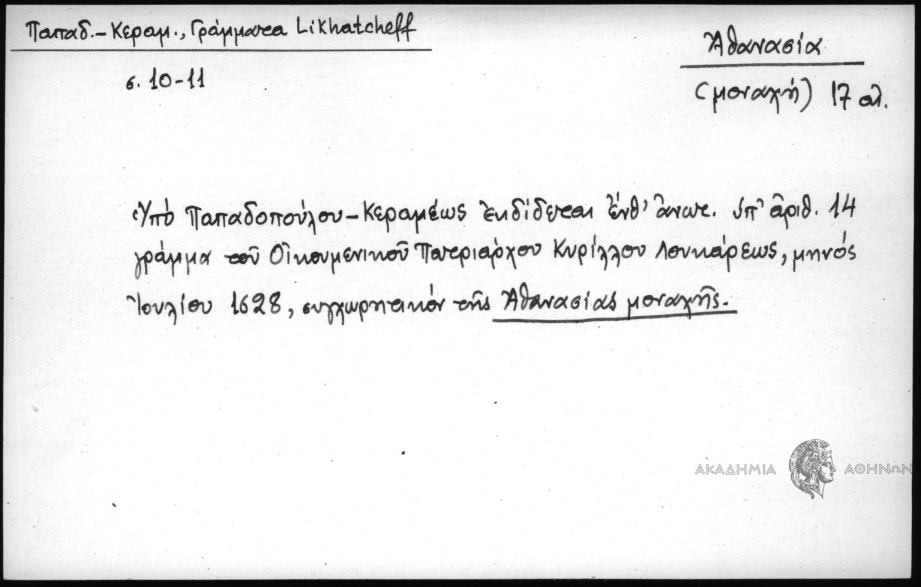 Παπαδ.-Κεραμ., Γράμματα Likhatcheff
σ. 10-11
Ἀθανασία
(μοναχή) 17 αἰ.
Ὑπό Παπαδοπούλου-Κεραμέως ἐκδίδεται ἔνθ' ἀνωτ. ὑπ' ἀριθ. 14
γράμμα τοῦ Οἰκουμενικοῦ Πατριάρχου Κυρίλλου Λουκάρεως, μηνός
Ἰουλίου 1628, συγχωρητικόν τῆς Ἀθανασίας μοναχῆς.
ΑΚΑΔΗΜΙΑ ΑΘΗΝΩΝ